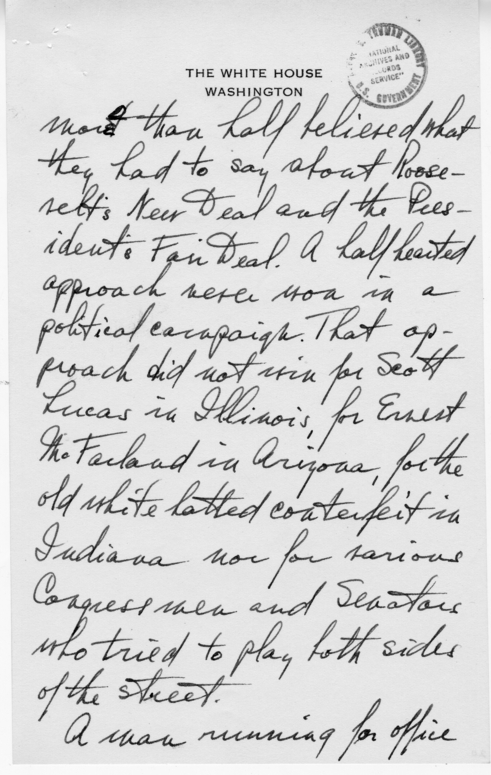 THE WHITE HOUSE
WASHINGTON
HARRY S. TRUMAN LIBRARY
"NATIONAL
ARCHIVES AND
RECORDS
SERVICE"
U.S. GOVERNMENT
more than half believed what
they had to say about Roose-
velt's New Deal and the Pres-
ident's Fair Deal. A halfhearted
approach never won in a
political campaign. That ap-
proach did not win for Scott
Lucas in Illinois, for Ernest
McFarland in Arizona, for the
old white hatted conterfeit in
Indiana nor for various
Congressmen and Senators
who tried to play both sides
of the street.
A man running for office